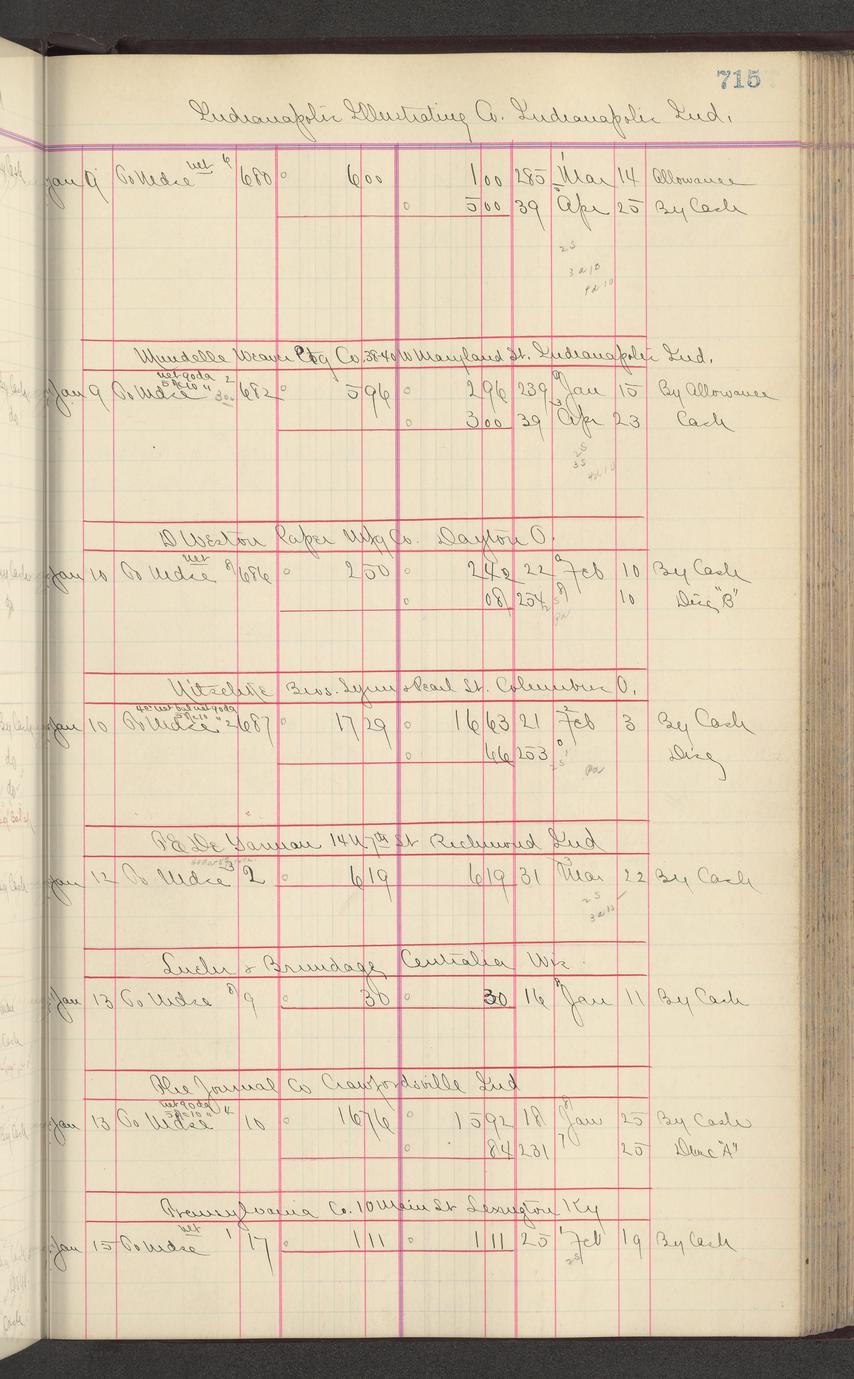 715
Indianapolis Illustrating Co. Indianapolis Ind.
Jan 9 To Mdse net 6 680 6 00 1 00 285 Mar 14 Allowance
5 00 39 Apr 25 By Cash
25
3 a 10
4 a 10
Weaver Co. 38-40 W Maryland St. Indianapolis Ind.
net 90 da 2
Jan 9 To Mdse 5% 10 " 300 682 5 96 2 96 239 Jan 15 By Allowance
3 00 39 Apr 23 Cash
25
35
4 a 10
D Weston Paper Mfg Co. Dayton O.
net
Jan 10 To Mdse 8 686 2 50 2 42 22 Feb 10 By Cash
08 254 10 Disc "B"
Bros. Lynn & Pearl St. Columbus O.
Jan 10 To Mdse 2 687 17 29 16 63 21 Feb 3 By Cash
66 253 Disc
14 N 7th St Richmond Ind
Jan 12 To Mdse 3 2 6 19 6 19 31 Mar 22 By Cash
25
3 a 15
& Brundage Centralia Wis.
Jan 13 To Mdse 8 9 30 30 16 Jan 11 By Cash
The Journal Co Crawfordsville Ind
net 90 da
Jan 13 To Mdse 5% 10 " 10 16 76 15 92 18 Jan 25 By Cash
84 231 7 25 Disc "A"
Pennsylvania Co. 10 Main St Lexington Ky
net
Jan 15 To Mdse 1 17 1 11 1 11 25 Feb 19 By Cash
25